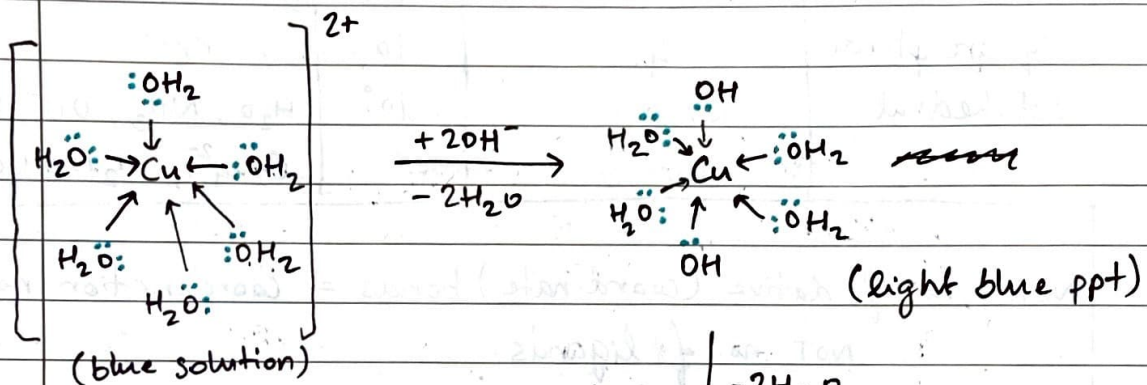 [ ]2+
:OH2
H2O: → Cu ← :OH2
H2O: :OH2
H2O:
(blue solution)
+ 2OH⁻
- 2H2O
OH
H2O: :OH2
Cu
H2O: :OH2
OH
(light blue ppt)